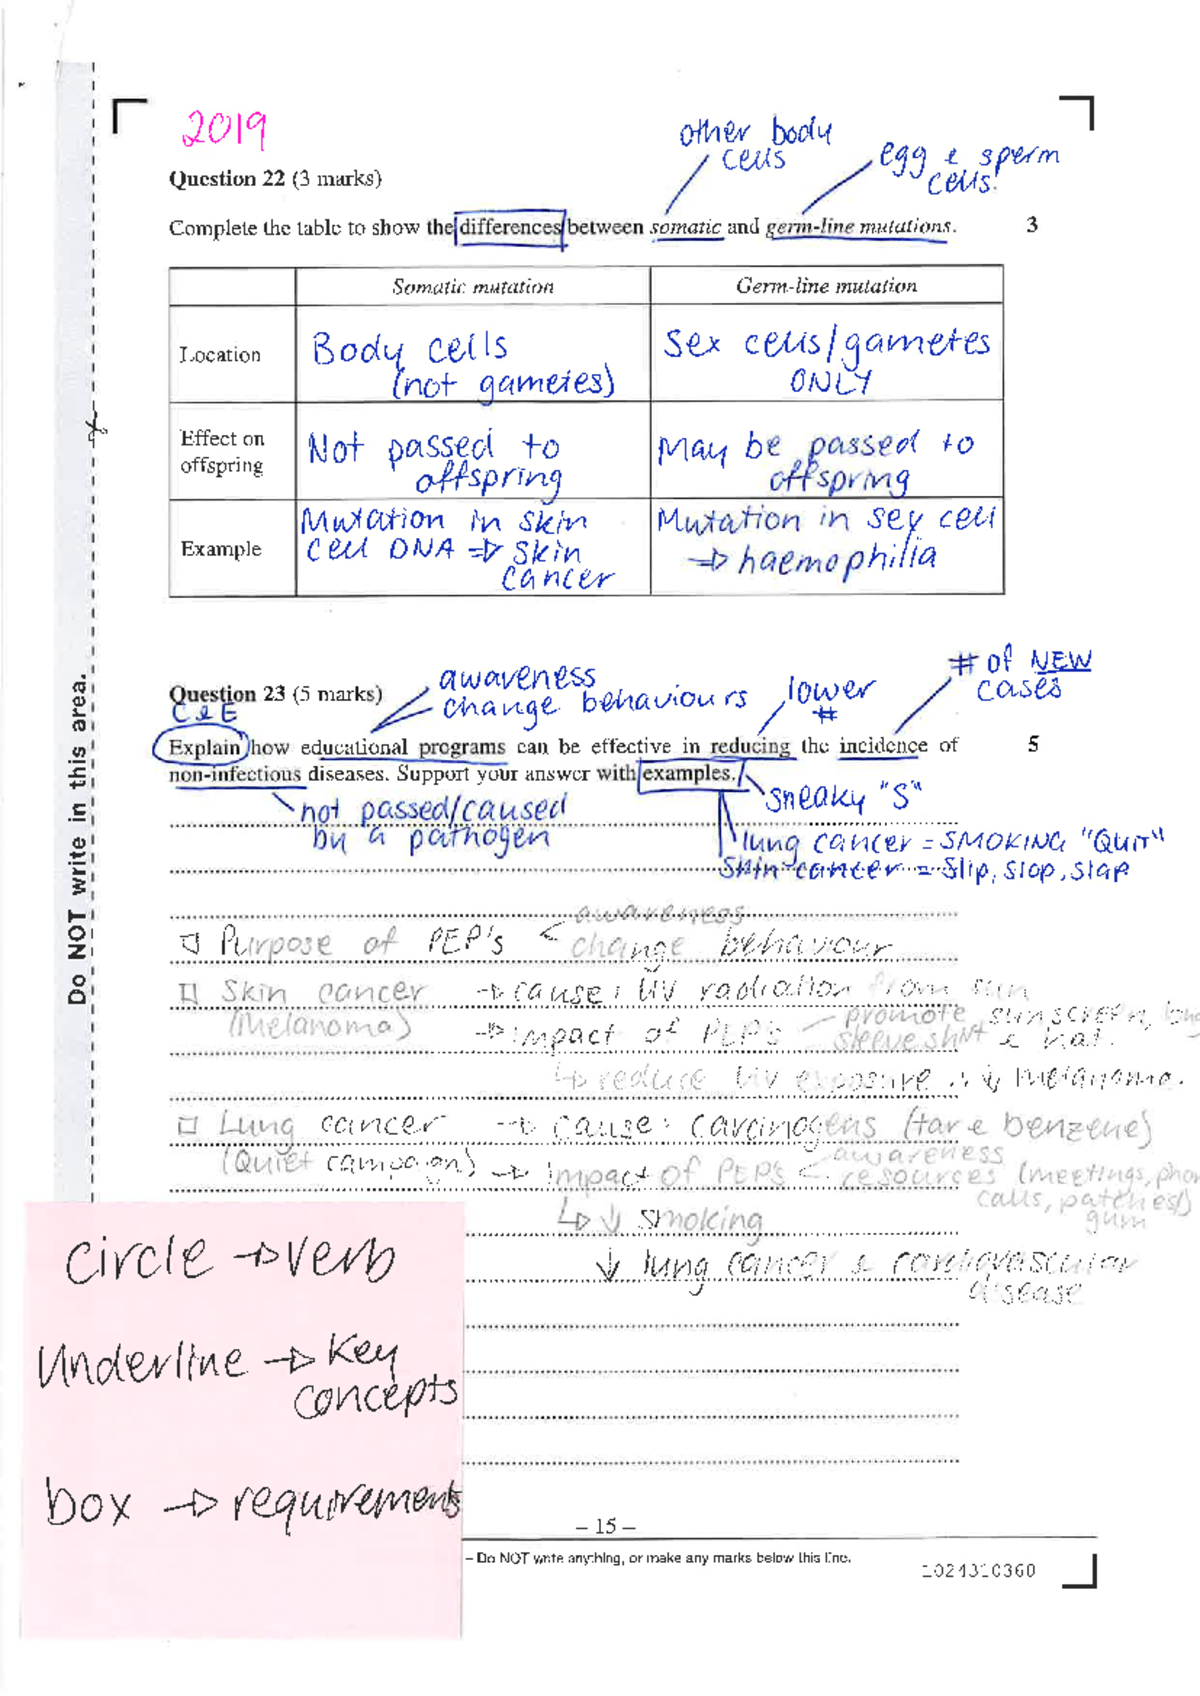 2019
other body
cells
egg & sperm
cells.
Question 22 (3 marks)
Complete the table to show the differences between somatic and germ-line mutations. 3
Somatic mutation Germ-line mutation
Location
Body cells
(not gametes)
Sex cells/gametes
ONLY
Effect on
offspring
Not passed to
offspring
May be passed to
offspring
Example
Mutation in skin
cell DNA => skin
cancer
Mutation in sex cell
=> haemophilia
# of NEW
cases
awareness
change behaviours
lower
#
Question 23 (5 marks)
C & E
Explain how educational programs can be effective in reducing the incidence of 5
non-infectious diseases. Support your answer with examples.
sneaky "S"
not passed/caused
by a pathogen
lung cancer = SMOKING "QUIT"
Skin cancer = Slip, Slop, Slap
Purpose of PEP's < awareness
change behaviour
Skin cancer → cause: UV radiation from sun
(Melanoma) → impact of PEP's – promote sunscreen, long
sleeve shirt & hat.
↳ reduce UV exposure ∴ ↓ melanoma.
Lung cancer → cause: carcinogens (tar & benzene)
(Quiet campaign) → impact of PEP's < awareness
resources (meetings, phone
calls, patches/)
gum
↳ ↓ smoking
↓ lung cancer & cardiovascular
disease
Do NOT write in this area.
circle → verb
Underline → Key
concepts
box → requirements
– 15 –
– Do NOT write anything, or make any marks below this line.
1024310360